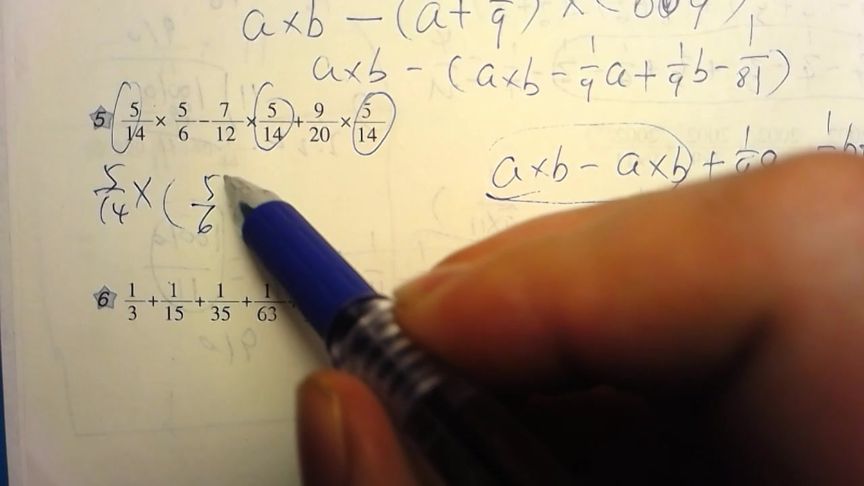 a×b − (a+ 1/9) × (b
a×b − (a×b − 1/9 a + 1/9 b − 1/81)
5 5/14 × 5/6 − 7/12 × 5/14 + 9/20 × 5/14
a×b − a×b + 1/9 a
5/14 × ( 5/6
6 1/3 + 1/15 + 1/35 + 1/63